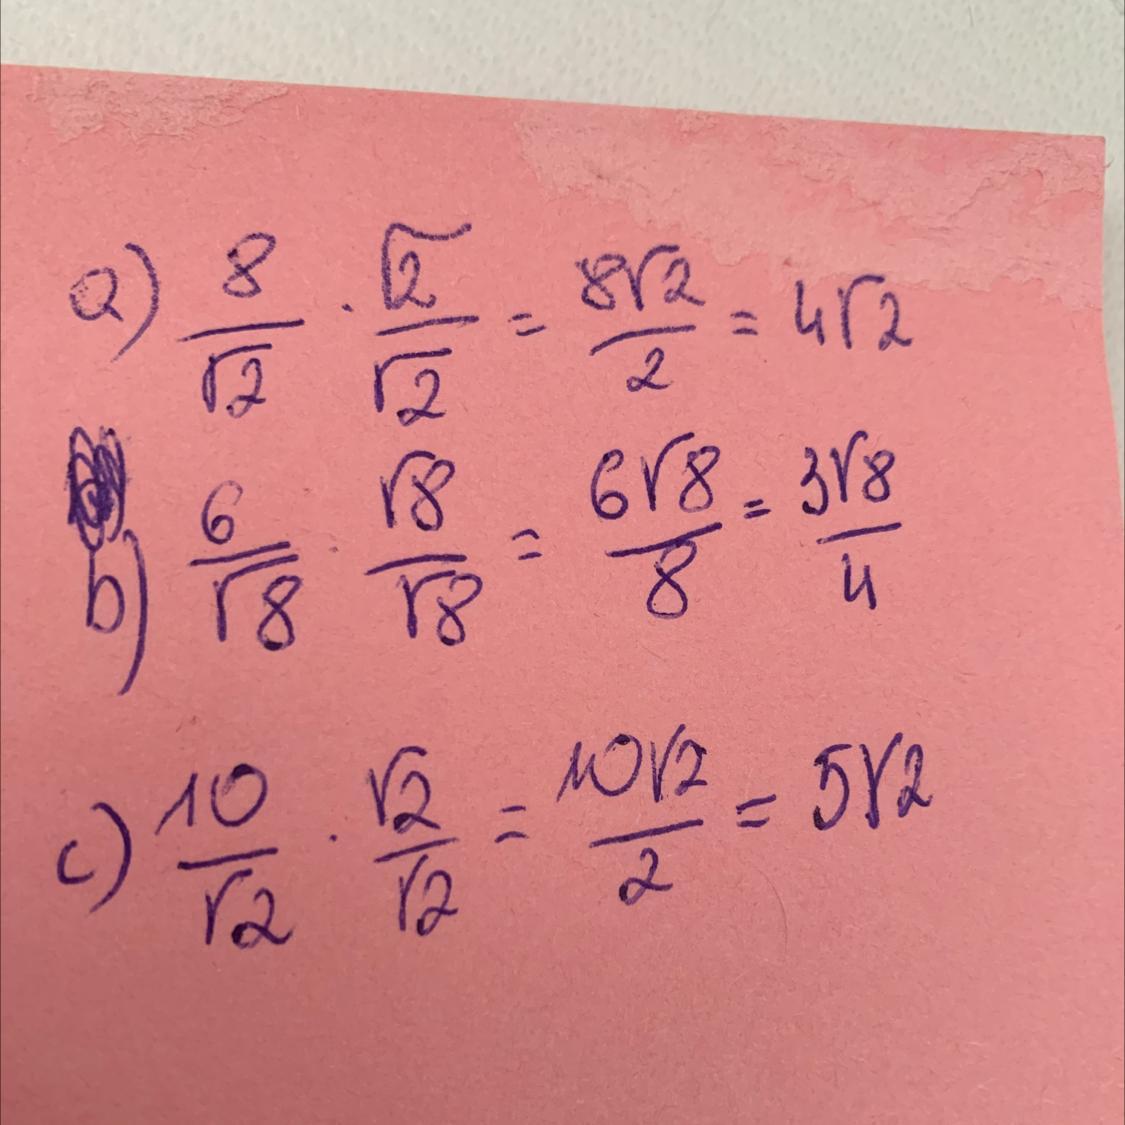 a) 8/√2 · √2/√2 = 8√2/2 = 4√2
b) 6/√8 · √8/√8 = 6√8/8 = 3√8/4
c) 10/√2 · √2/√2 = 10√2/2 = 5√2